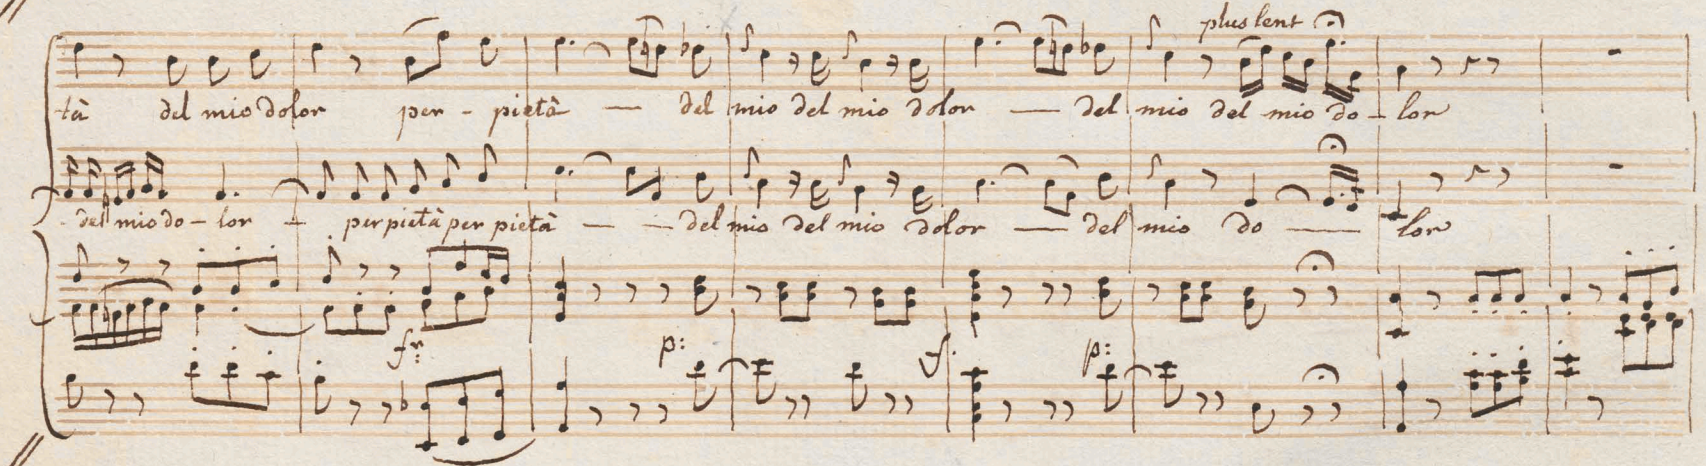 plus lent
-tà del mio dolor per - pietà — del mio del mio dolor — del mio del mio do - lor
- del mio do - lor - per pietà per pietà — — del mio del mio dolor — del mio do — lor
p: f. p: